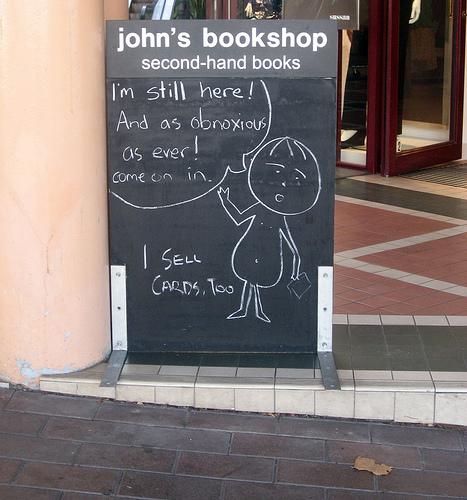 john's bookshop
second-hand books
I'm still here!
And as obnoxious
as ever!
come on in.
I SELL
CARDS, TOO